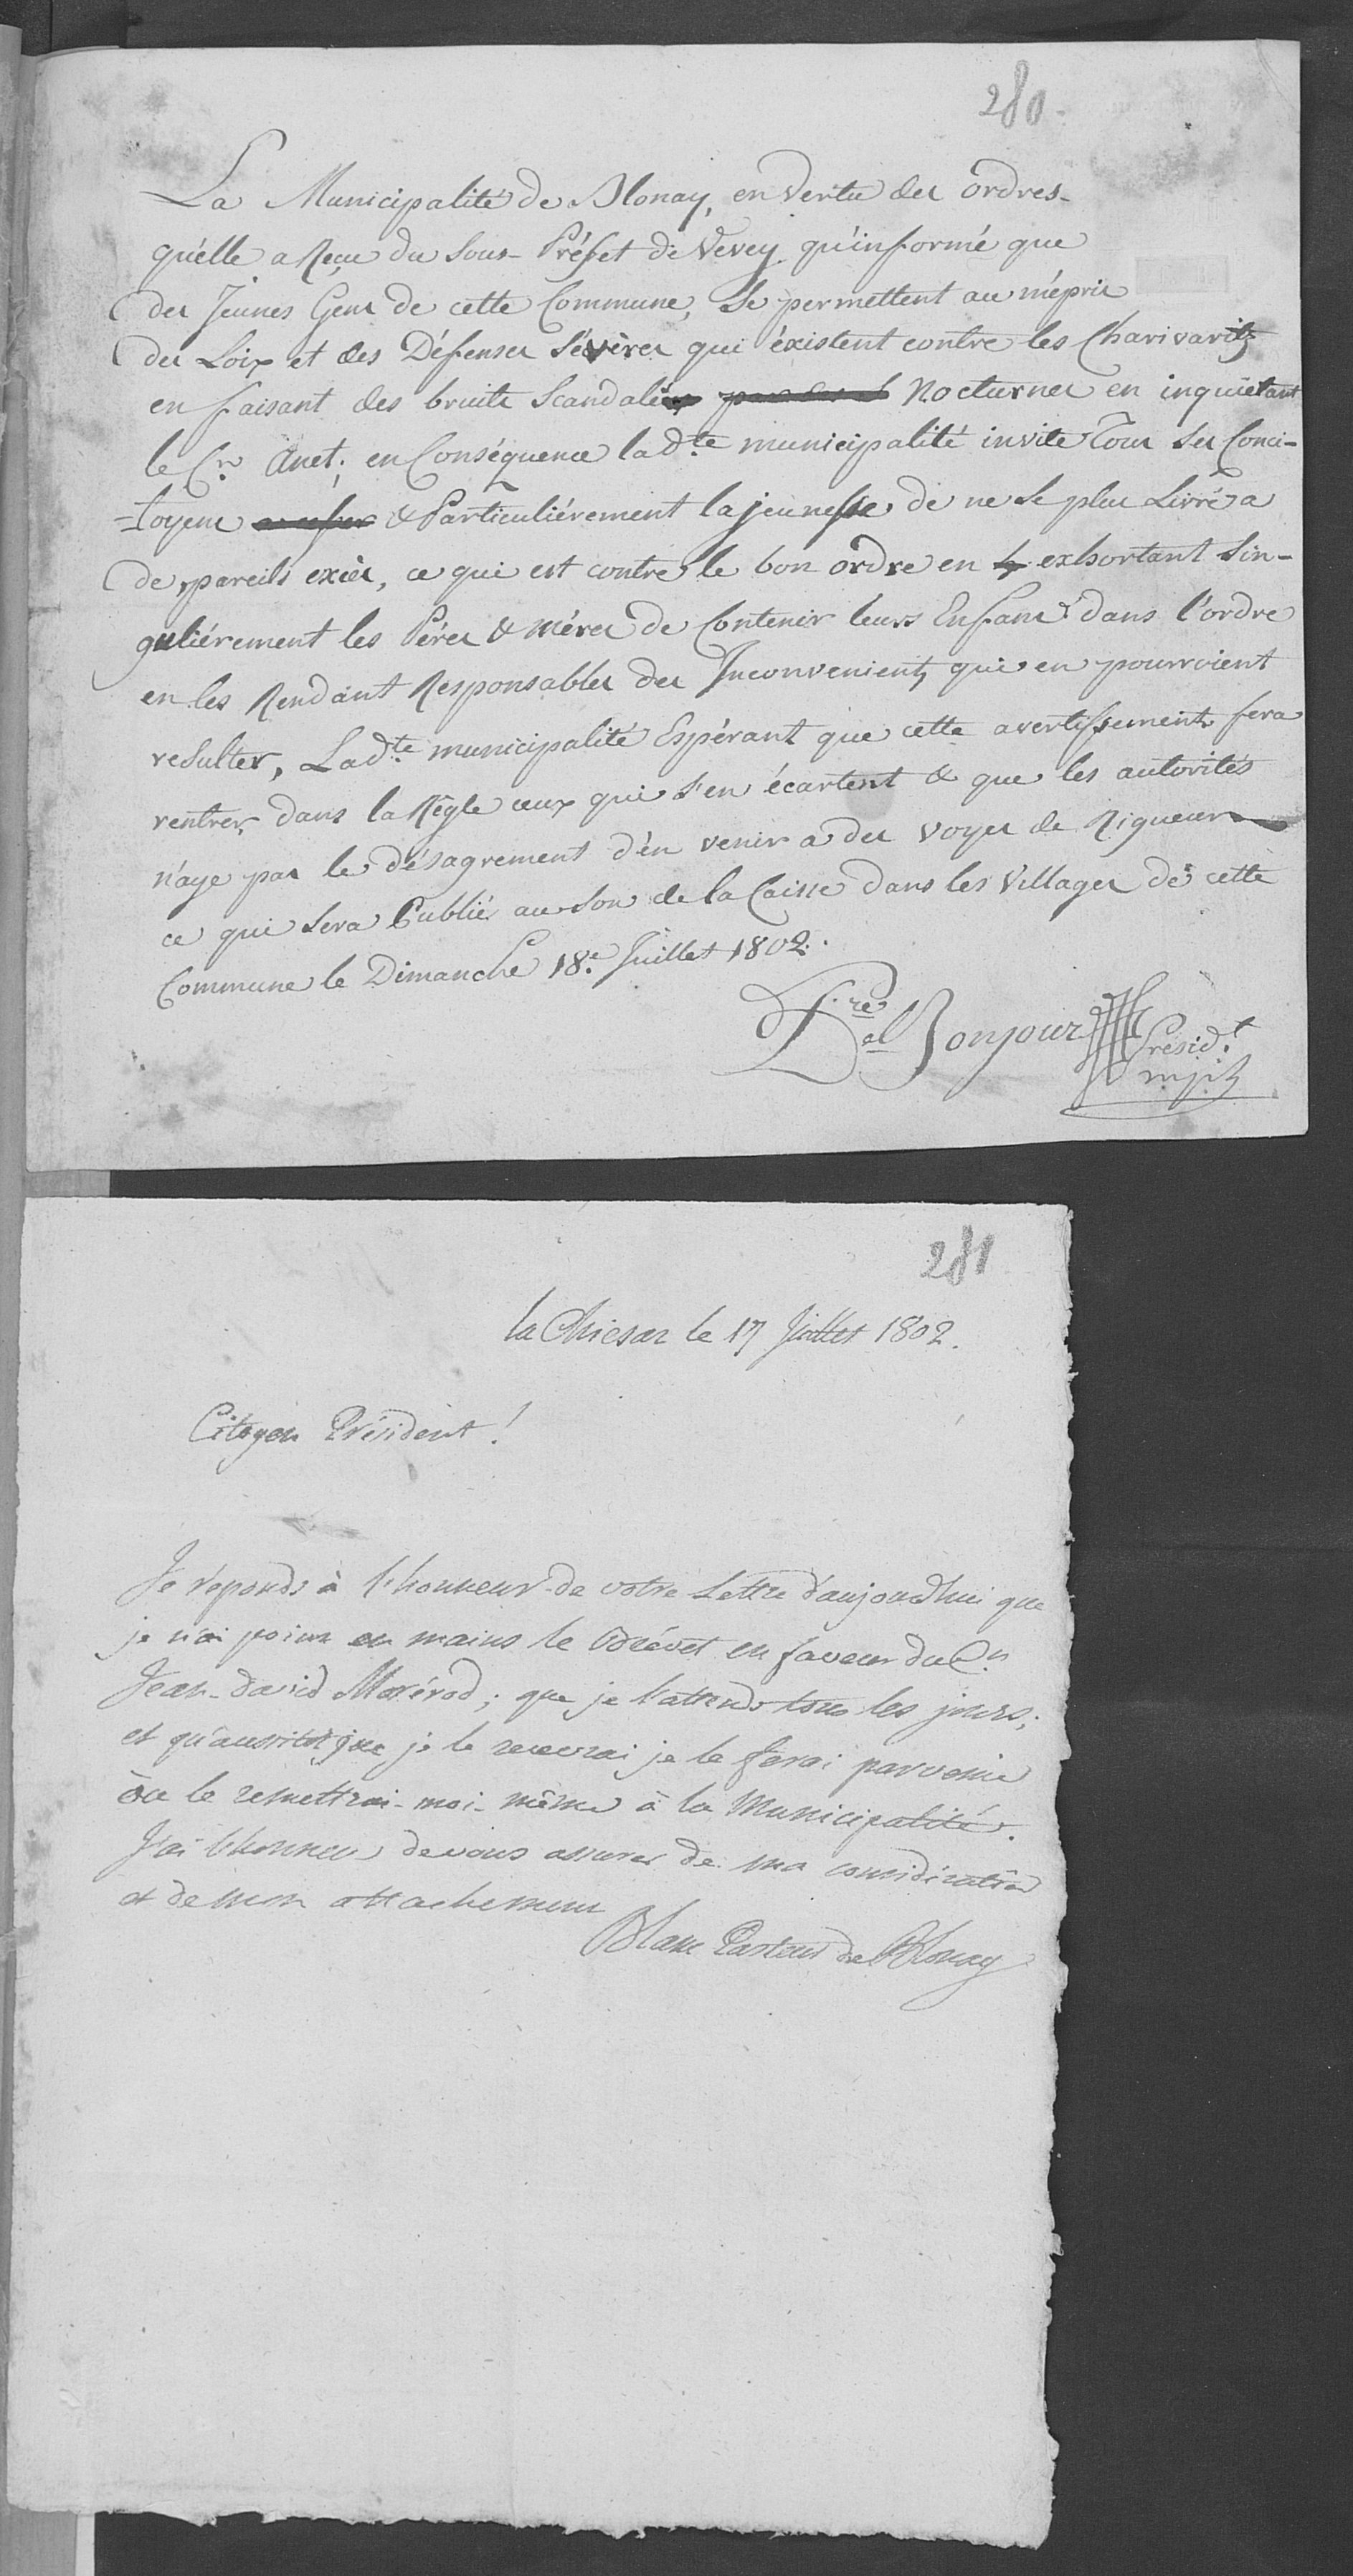 280.
La Municipalité de Blonay, en Vertu des ordres
qu'elle a Reçu du Sous-Préfet de Vevey qu'informé que
des Jeunes Gens de cette Commune, Se permettent au mépris
des Loix et des Défenses Sévères qui éxistent contre les Charivarits
en faisant des bruits Scandaleux Nocturnes en inquiétant
le Cn. Anet; en Conséquence lad.te municipalité invite Tous Ses Conci-
-toyens & Particuliérement la jeunesse de ne Se plus Livré a
de pareils excès, ce qui est contre le bon ordre en exhortant Sin-
guliérement les Péres & méres de Contenir leurs Enfans dans l'ordre
en les Rendant Responsables des Inconvenients qui en pourroient
resulter, Lad.te municipalité Espérant que cette avertissement fera
rentrer dans la Régle ceux qui s'en écartent & que les autorités
n'aye pas le désagrement d'en venir a des voyes de Rigueur
ce qui Sera Publié au Son de la Caisse dans les Villages de cette
Commune le Dimanche 18.e Juillet 1802.
Bonjour Présid.t
281
la Chiesaz le 17 Juillet 1802.
Citoyen Président!
Je réponds à l'honneur de votre Lettre d'aujourdhui que
je n'ai point en mains le Brévet en faveur du Cn
Jean-David Morérod; que je l'attends tous les jours;
et qu'aussitot que je le recevrai je le ferai parvenir
ou le remettrai-moi-même à la Municipalité.
J'ai l'honneur de vous assurer de ma considération
et de mon attachement
Blanc Pasteur de Blonay